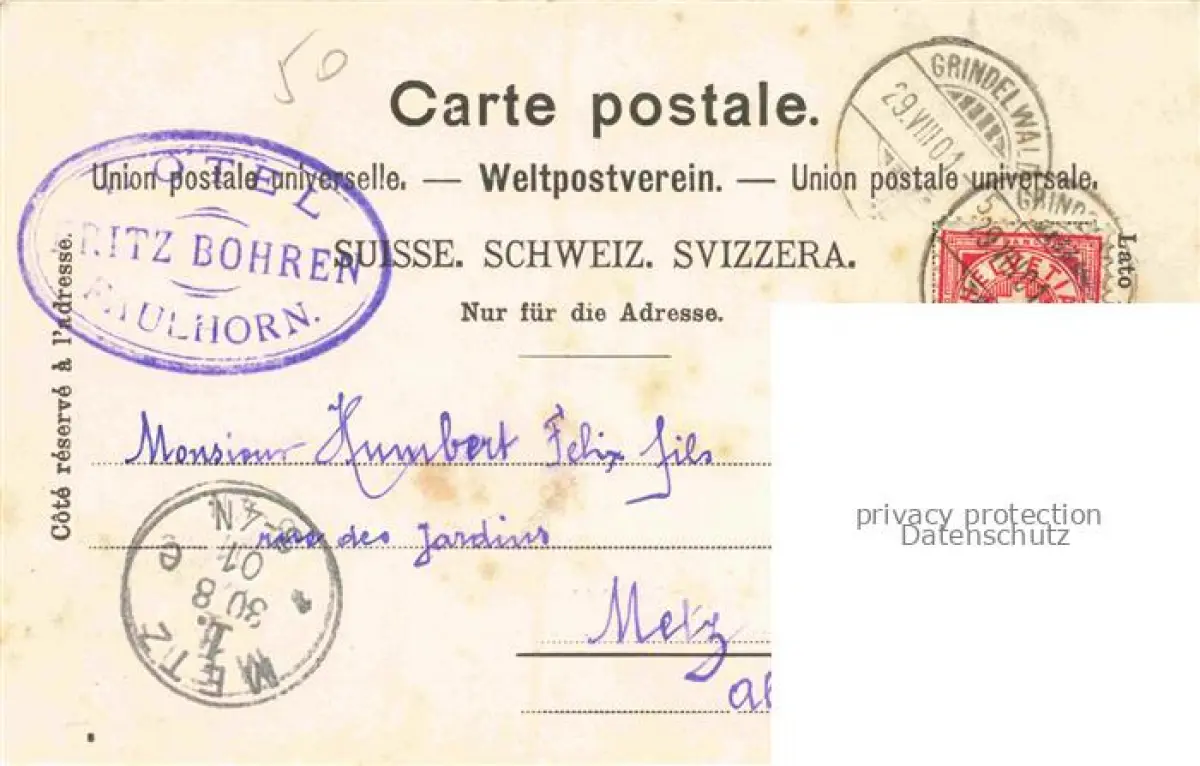 50
Carte postale.
Union postale universelle. — Weltpostverein. — Union postale universale.
SUISSE. SCHWEIZ. SVIZZERA.
Nur für die Adresse.
HOTEL
FRITZ BOHREN
FAULHORN.
GRINDELWALD
29.VIII.01
GRIND
HELVETIA
Côté réservé à l'adresse.
Lato
Monsieur Humbert Felix fils
rue des Jardins
Metz
METZ
1.
30 8
N
privacy protection
Datenschutz